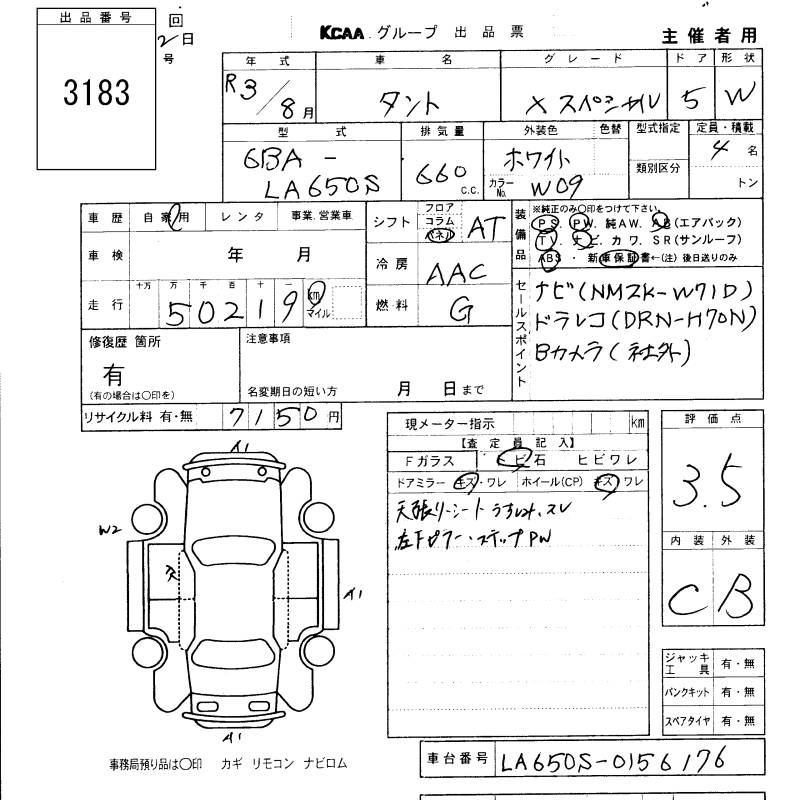 出品番号
3183
回
2日
号
KCAA グループ 出品票
主催者用
年式 車名 グレード ドア 形状
R3/8月 タント Xスペシャル 5 W
型式 排気量 外装色 色替 型式指定 定員・積載
6BA-
LA650S
660 c.c.
ホワイト
カラーNo. W09
類別区分
4名
トン
車歴 自家用 レンタ 事業.営業車
車検 年 月
走行 十万 万 千 百 十 一
50219 km マイル
シフト フロア コラム パネル AT
冷房 AAC
燃料 G
装備品
※純正のみ〇印をつけて下さい。
PS. PW. 純AW. AB(エアバック)
TV. ナビ. カワ. SR(サンルーフ)
ABS ・ 新車保証書←(注)後日送りのみ
セールスポイント
ナビ(NMZK-W71D)
ドラレコ(DRN-H70N)
Bカメラ(社外)
修復歴 箇所
有
(有の場合は〇印を)
注意事項
名変期日の短い方 月 日まで
リサイクル料 有・無 7150円
現メーター指示 km
【査定員記入】
Fガラス トビ石 ヒビワレ
ドアミラー キズ・ワレ ホイール(CP) キズ ワレ
天張リ・シート うすしみ、スレ
左下ピラー・ステップPW
評価点
3.5
内装 外装
C B
ジャッキ工具 有・無
パンクキット 有・無
スペアタイヤ 有・無
A1
W2
A1
A1
事務局預り品は〇印 カギ リモコン ナビロム
車台番号 LA650S-0156176